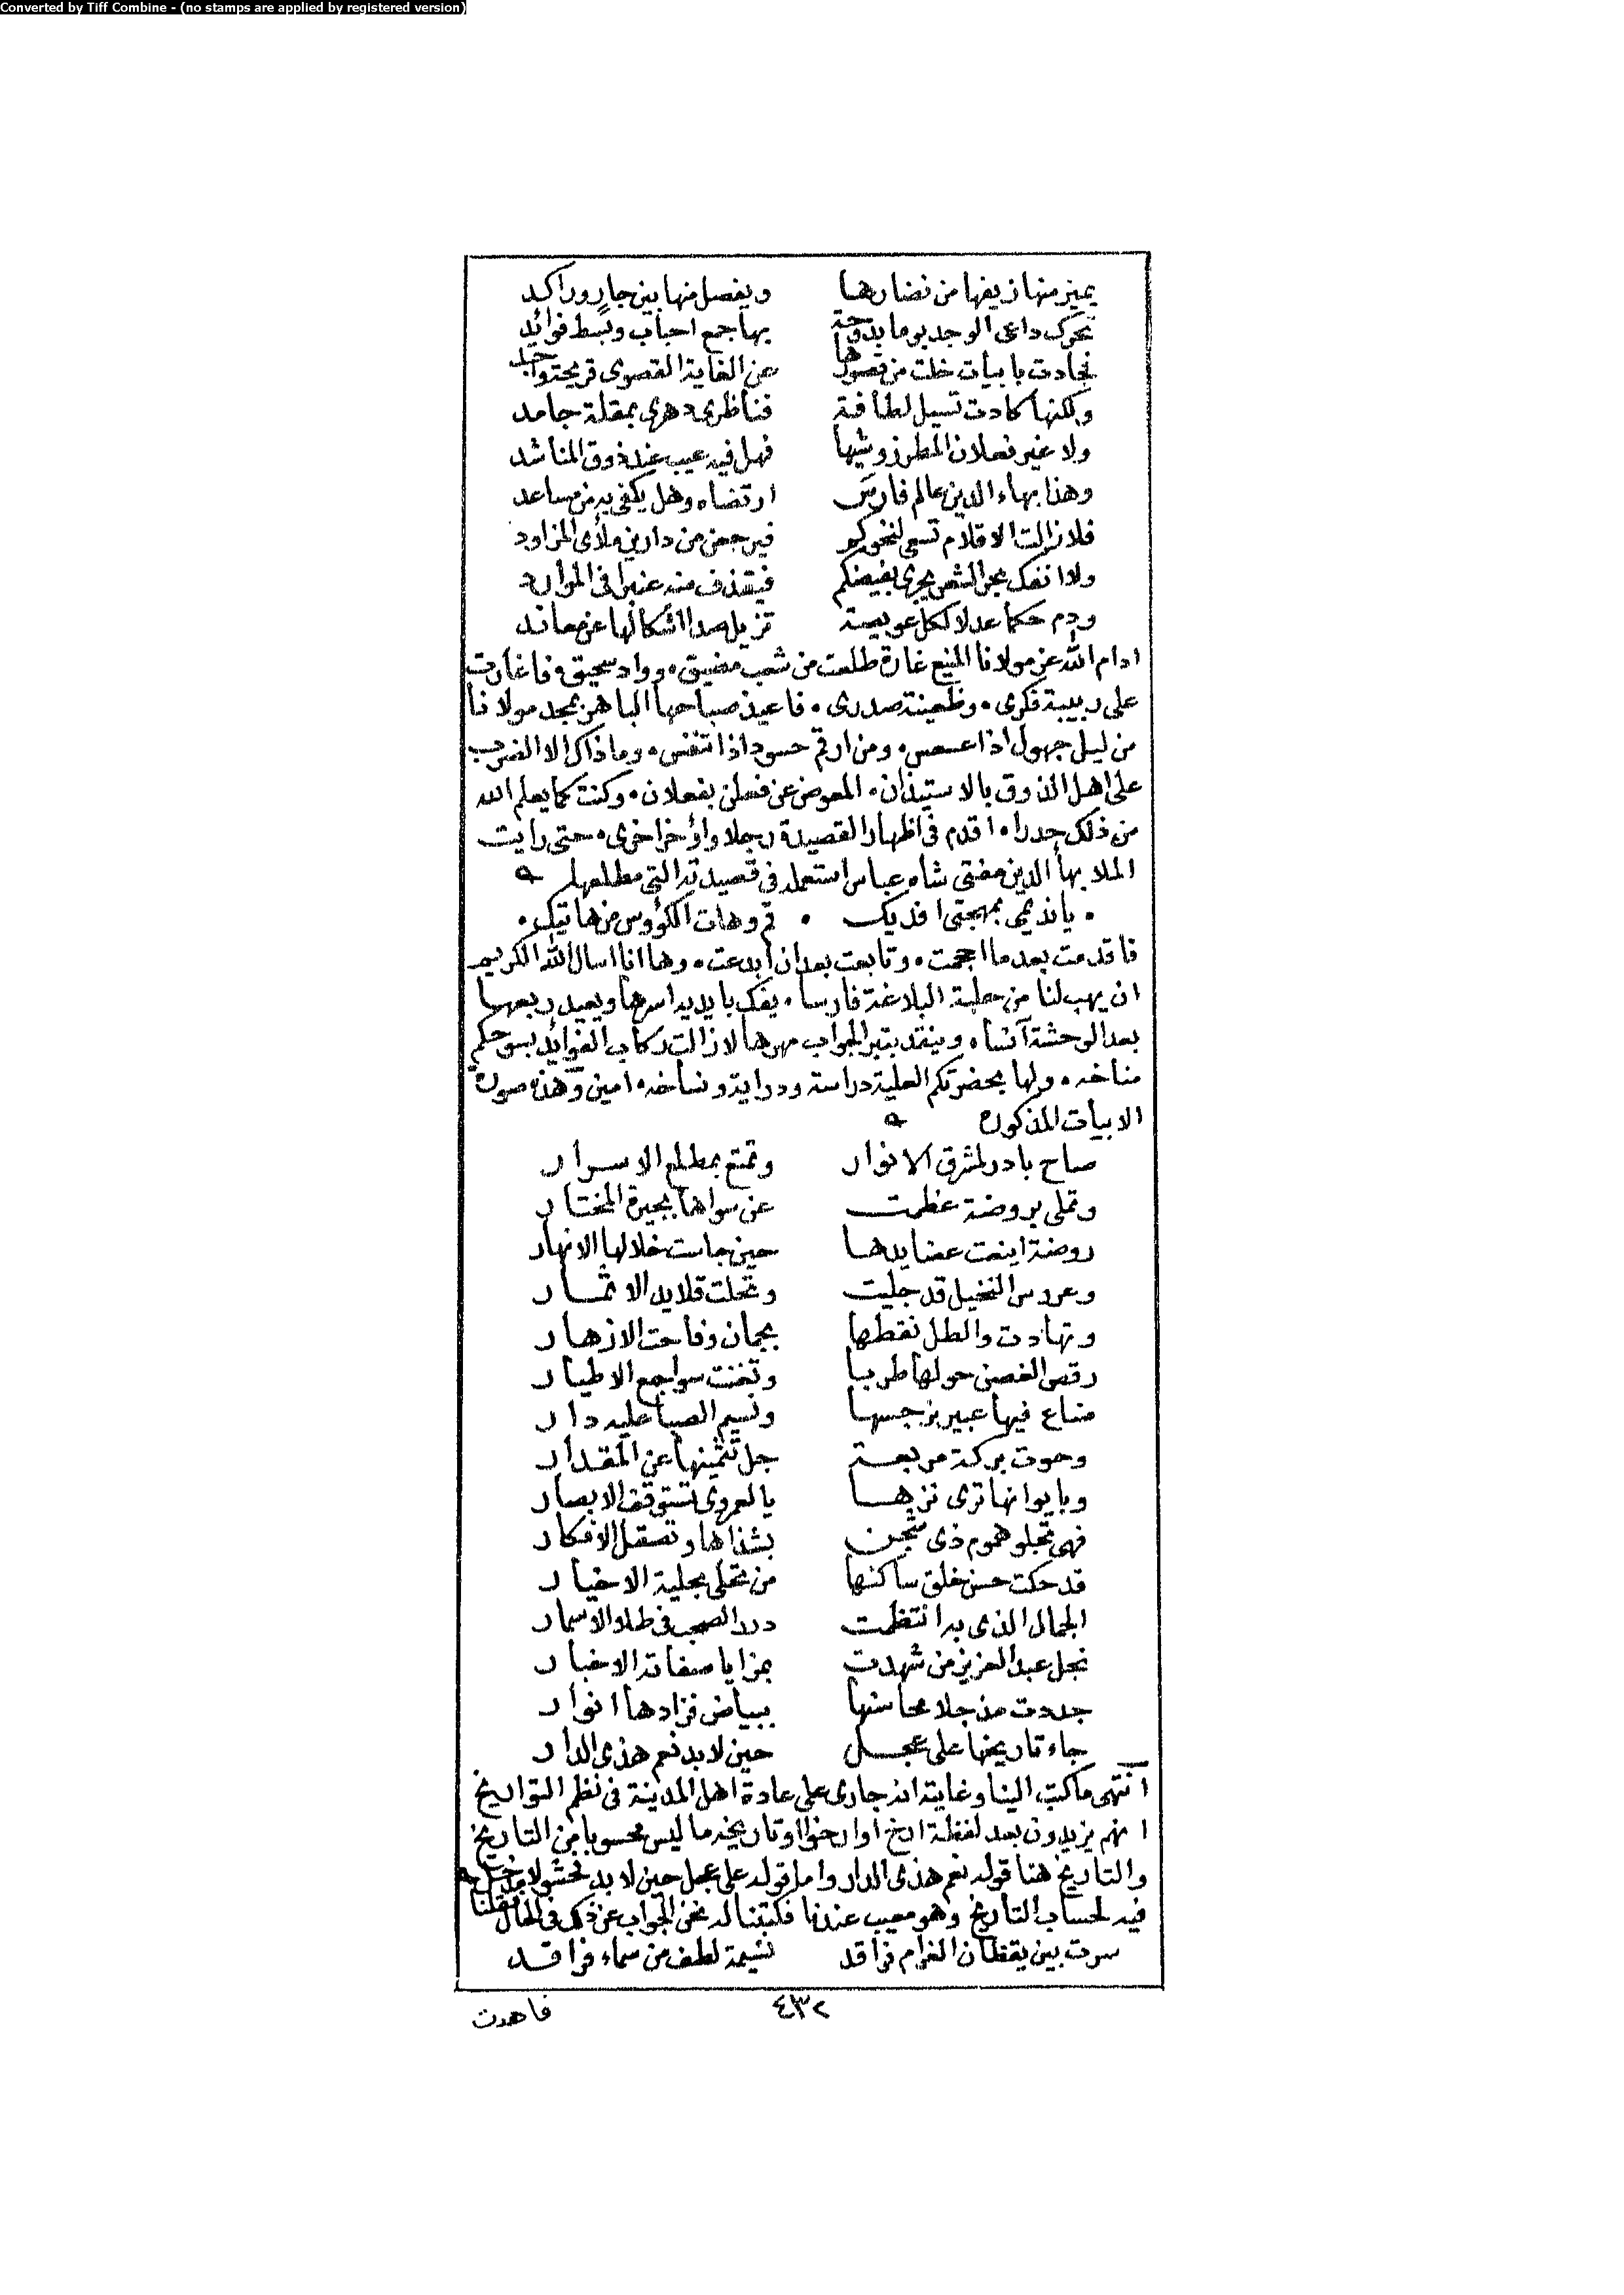 Converted by Tiff Combine - (no stamps are applied by registered version)
يميز منها زيفها من نضارها ويفصل منها بين جار وراكد
تحرك داعى الوجد يوما بدوحة بها جمع احباب وبسط فوائد
فجادت بابيات خلت من قصورها عن الغاية القصوى قريحة واجد
ولكنها كادت تسيل لطافة فناظرى دهرى بمقلة جامد
ولا غير فعلان المطرز وشيها فهل فيه عيب عند ذوق المناشد
وهذا بهاء الدين عالم فارس ارتضاه وهل يكفى به من مساعد
فلا زالت الاقلام تسعى لنحوكم فيرجعن من دارين ملأى المزاود
ولا انفك بحر الشعر يجرى بفيضكم فيقذف منه عنبرا فى الموارد
ودم حكما عدلا لكل عويصة تزيل صدا اشكالها عن معاند
ادام الله عز مولانا المنيع غارة طلعت من شعب مضيق، وواد سحيق، فاغارت
على ربيبة فكرى، وظعينة صدرى، فاعيذ صباحها الباهر بمجد مولانا
من ليل جهول اذا عسعس، ومن ارقم حسود اذا تنفس، وما ذاك الا الضرب
على اهل الذوق بالاستيذان، المعوض عن فعلن بفعلان، وكنت كما يعلم الله
من ذلك حدرا، اقدم فى اظهار القصيدة رجلا واؤخر اخرى، حتى رايت
الملا بهأ الدين مفتى شاه عباس استعمله فى قصيدته التى مطلعها
يا نديمى بمهجتى افديك قم وهات الكؤوس من هاتيك
فاقدمت بعد ما احجمت، وتابعت بعد ان ابدعت، وها انا اسال الله الكريم
ان يهب لنا من حلبة البلاغة فارسا، يفك بايديه اسرها ويعيد ربعها
بعد الوحشة آنسا، وينقد بتبر الجواب مهرها لا زالت ركاب الفوائد بسوحكم
مناخه، ولها بحضرتكم العلية دراسة ودراية ونساخه، امين وهذه صورة
الابيات المذكورة
صاح بادر لمشرق الانوار وتمتع بمطلع الاسرار
وتملى بروضة عظمت عن سواها بجيرة المختار
روضة اينعت عضايدها حين جاست خلالها الانهار
وعروس النخيل قد جليت وتحلت قلايد الاثمار
وتهادت والطل نقطها بجمان وفاحت الازهار
رقص الغصن حولها طربا وتغنت سواجع الاطيار
ضاع فيها عبير نرجسها ونسيم الصبا عليه دار
وحوت بركة مربعة جل تثمينها عن المقدار
وبايوانها ترى نزها يا لعمرى تستوقف الابصار
فهى تجلو هموم ذى شجن بشذاها وتصقل الافكار
قد حكت حسن خلق ساكنها من تحلى بحلية الاخيار
الجمال الذى به انتظمت درر الصحب فى طلا والاسمار
نجل عبد العزيز من شهدت بمزايا صفاته الاخبار
جددت مذ جلا محاسنها ببياض فزادها انوار
جاء تاريخها على عجل حين لا بد نعم هذى الدار
انتهى ما كتب الينا وغاية انه جارى على عادة اهل المدينة فى نظم التواريخ
انهم يزيدون بعد لفظة ارخ او ارخوا وتاريخه ما ليس محسوبا من التاريخ
والتاريخ هنا قوله نعم هذى الدار واما قوله على عجل حين لا بد فحشو لا مدخل
فيه لحساب التاريخ وهو معيب عندنا فكتبنا له نحن الجواب عن ذلك فى الحال فقلنا
سرت بين يقظان الغرام فراقد نسيمة لطف من سماء فراقد
٤٣٢
فاهدت